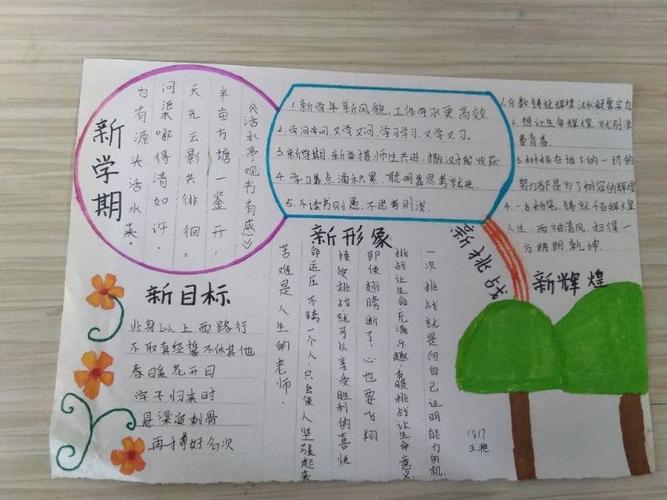 新学期
《活水亭观书有感》
半亩方塘一鉴开，
天光云影共徘徊。
问渠哪得清如许，
为有源头活水来。
1.新学年新风貌，工作学水更高效
2.学问学问又学又问，学习学习又学又习。
3.新学期 新举措 师生共进，撒汗水能收获
4.学习靠点滴积累，聪明靠思考前进
5.不读书则愚，不思考则浅。
1.分数铸就辉煌 汗水凝聚实力
2.想让生命辉煌，就别浪
费青春
3.树根在地下的一切的
努力都是为了树冠的辉煌
4.一支粉笔，铸就千百辉煌
人生，两袖清风，扫得一
方明朗乾坤。
新形象
新挑战
新辉煌
一次挑战就是向自己证明能力的机
挑战让生命充满乐趣
挑战让生命
即使翅膀断了，心也要飞翔
接受挑战就可以享受胜利的喜悦
命运压不垮一个人，只会使人坚强起来
苦难是人生的老师。
新目标
此身以上西路行
不取真经誓不休其他
春暖花开日
学子归来时
悬梁追刺骨
再搏好名次
1817
王艳